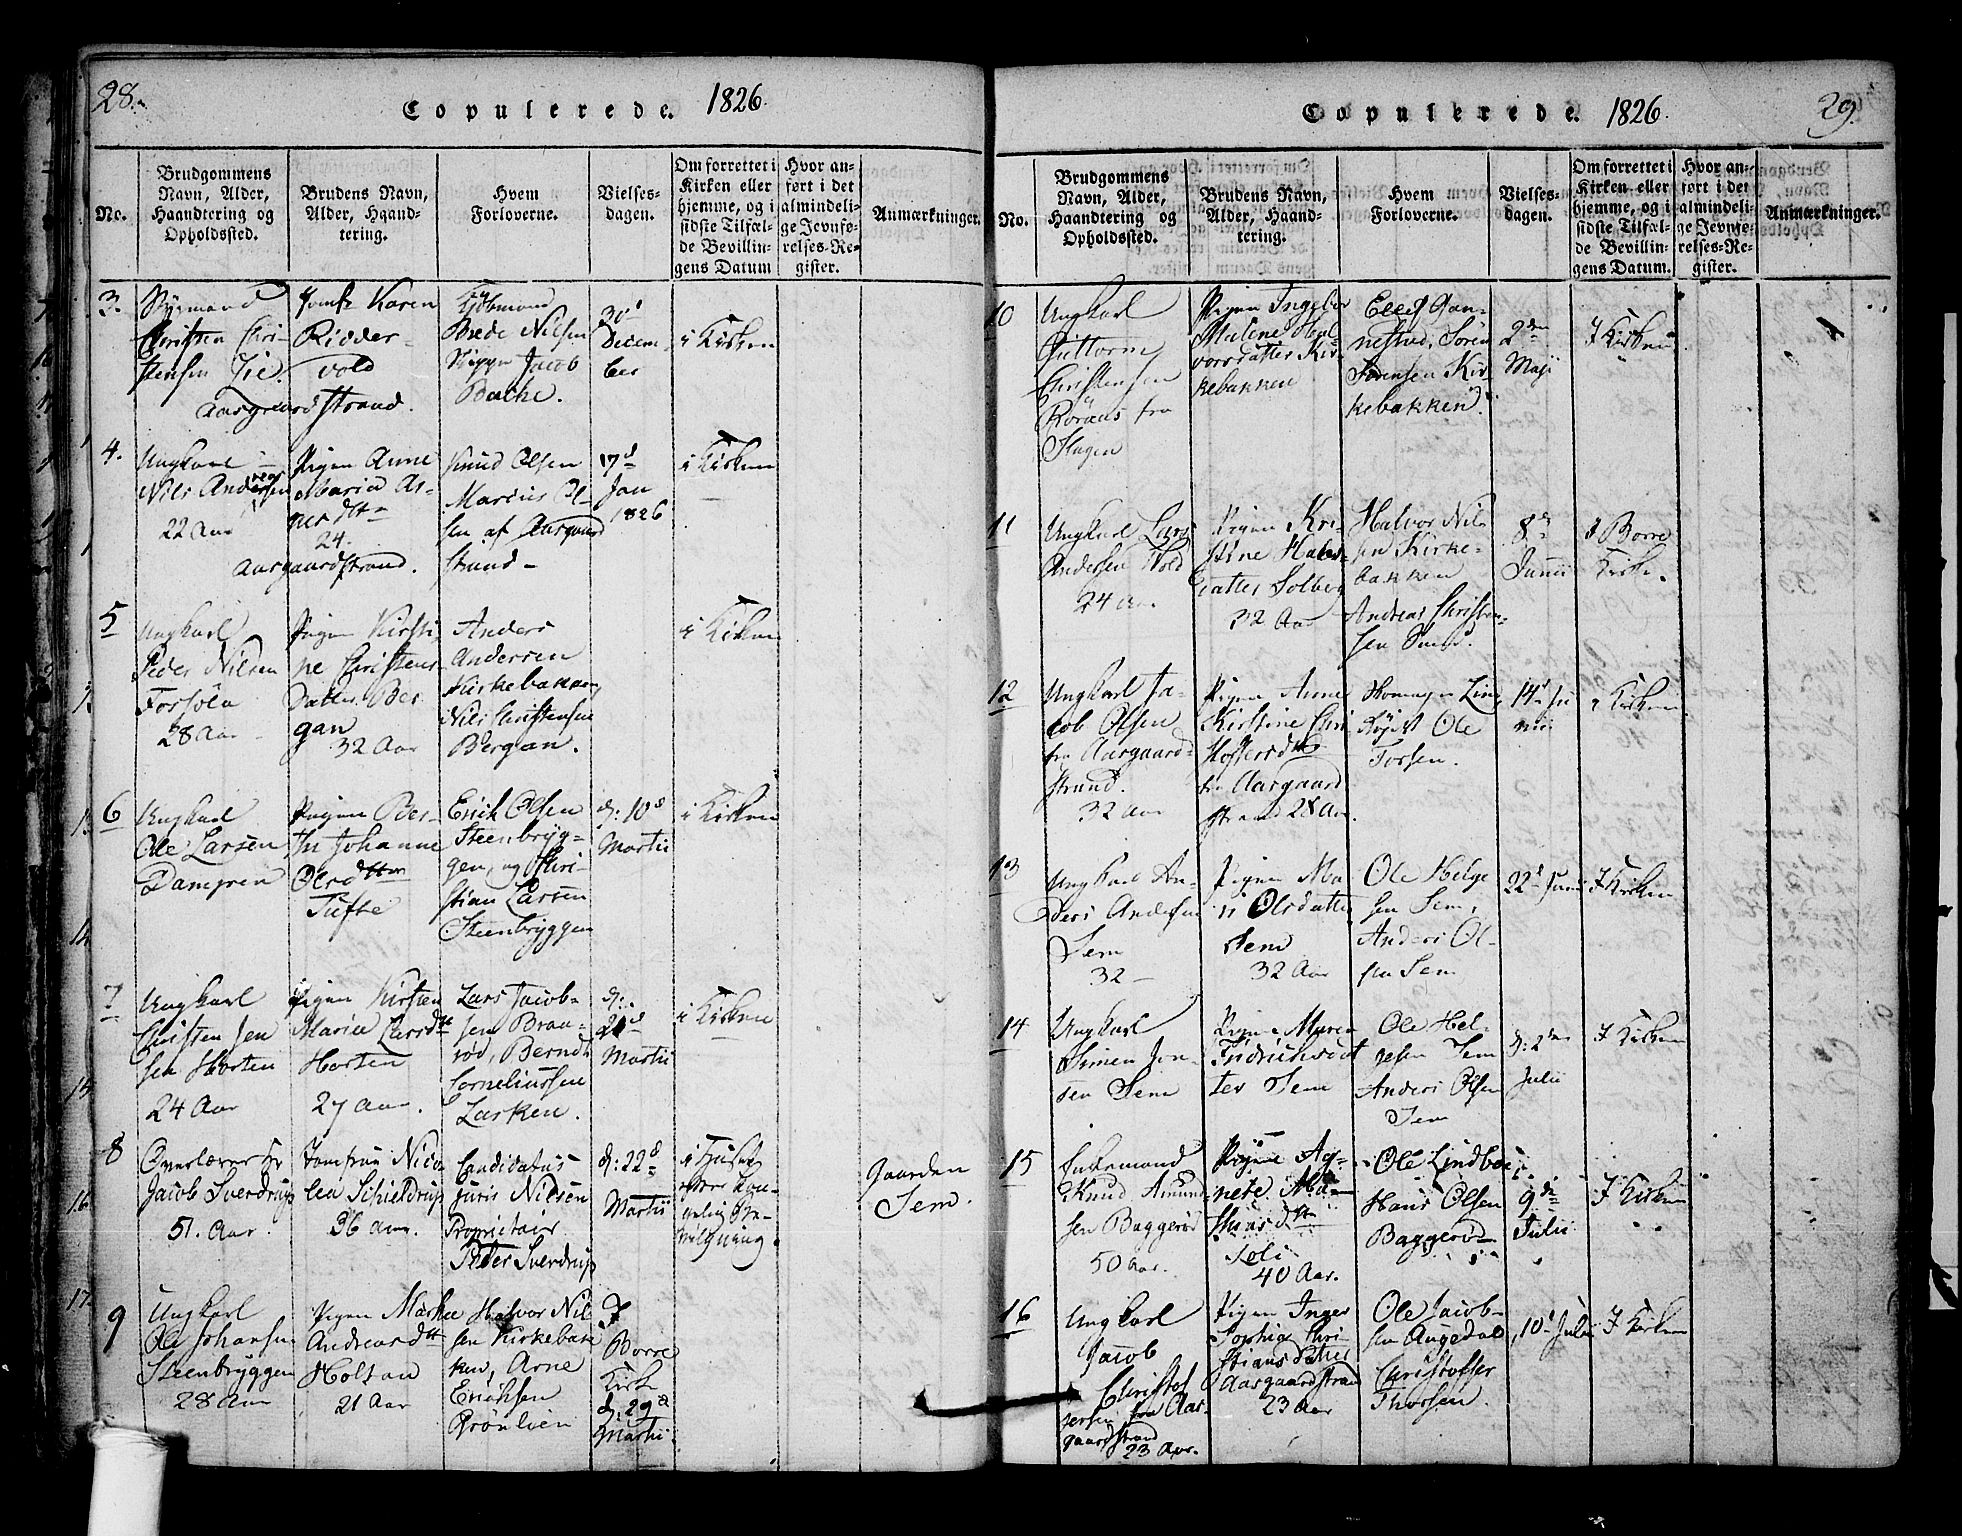 28.
Copulerede. 1826.
No.
Brudgommens
Navn, Alder,
Haandtering og
Opholdssted.
Brudens Navn,
Alder, Haand-
tering.
Hvem
Forloverne.
Vielses-
dagen.
Om forrettet i
Kirken eller
hjemme, og i
sidste Tilfæl-
de Bevillin-
gens Datum
Hvor an-
ført i det
almindeli-
ge Jevnfø-
relses-Re-
gister.
Anmærkninger.
3.
Christen Chri-
stensen
Aasgaardstrand.
Jomfr Karen
Ridder-
vold
Kjøbmand
Brede Nilsen
Jacob
Bache.
30d
Decem-
ber
i Kirken
4.
Ungkarl
Nils Andersen
22 Aar
Pigen Anne
Maria As-
24.
Aasgaardstrand.
Knud Olsen
Marius Ol-
sen af Aasgaard
strand
17d
Jan
1826
i Kirken
5
Ungkarl
Peder Nilsen
28 Aar
Pigen Kirsti-
ne Christens-
Datter Ber-
gan
32 Aar
Anders
Andersen
Kirkebakken
Nils Christensen
Bergan.
i Kirken
6
Ungkarl
Ole Larsen
Pigen Ber-
the Johanne
Olsdtter
Tufte
Erich Olsen
Steenbryg-
gen, og Chri-
stian Larsen
Steenbryggen
d: 10d
Martii
i Kirken
7
Ungkarl
Christen Jen
sen Horten
24 Aar
Pigen Kirsten
Maria Larsdtt
Horten
27 aar.
Lars Jacob-
sen Brau-
rød, Berndt
Corneliussen
Larken.
d:
21d
Martii
i Kirken
8
Overlærer Hr
Jacob Sverdrup
51. Aar.
Jomfrue Nico
lea Schieldrup
36 aar.
Candidatus
juris Nilsen
Proprietair
Peter Sverdrup
d: 22d
Martii
i Huset
efter kon-
gelig Be-
vilgning.
Gaarden
Sem.
9
Ungkarl
Ole Johansen
Steenbryggen
28 Aar
Pigen Marthe
Andreasdtt
Holtan
21 Aar
Halvor Nil
sen Kirkebak
ken, Arne
Eriksen
I
Borre
Kirke
d. 29d
Martii.
29.
Copulerede. 1826.
No.
Brudgommens
Navn, Alder,
Haandtering og
Opholdssted.
Brudens Navn,
Alder, Haand-
tering.
Hvem
Forloverne.
Vielses-
dagen.
Om forrettet i
Kirken eller
hjemme, og i
sidste Tilfæl-
de Bevillin-
gens Datum.
Hvor an-
ført i det
almindeli-
ge Jevnfø-
relses-Re-
gister.
Anmærkninger.
10
Ungkarl
Guttorm
Christensen
Roraas fra
Slagen
Pigen Ingebor
Malene Hal
vorsdatter Kir-
kebakken
Ellef Gan-
nestad, Søren
Sørensen Kir-
kebakken.
2den
Maji
I Kirken
11
Ungkarl Lars
Andersen Wold
24 Aar.
Pigen Kri
stine Hals-
datter Solberg
32 Aar
Halvor Nil
sen Kirke-
bakken
Andreas Christen-
sen
8de
Junii
I Borre
Kirke.
12
Ungkarl Ja-
cob Olsen
fra Aasgaard-
strand.
32 Aar
Pigen Anne
Kirstine Chri
stoffersdtt
fr Aasgaard
strand 28 Aar.
Ole
Torsen.
14d Ju
nii
i Kirken
13
Ungkarl An-
ders Andersen
Sem
32
Pigen Ma
ri Olsdatter
Sem
32 Aar
Ole Helge
sen Sem,
Anders Ol-
sen Sem
22d Junii
I Kirken
14
Ungkarl
Simen Jen-
sen Sem
Pigen Maren
Fridrichsdat
ter Sem
Ole Hel-
gesen Sem
Anders Olsen
Sem
d: 2den
Julii
I Kirken
15
Enkemand
Knud Amund
sen Baggerød
50 Aar.
Pigen Ag-
nete Ma-
thiasdtt
Soli
40 Aar.
Ole Lindboe
Hans Olsen
Baggerød
9de
Julii
I Kirken
16
Ungkarl
Jacob
Christof
fersen fra Aas-
gaardstrand
23 Aar.
Pigen Inger
Sophia Chri-
stiansDatter
Aasgaardstrand
23 Aar
Ole Jacob-
sen Augedal
Christoffer
Thorsen.
10d Julii
I Kirken